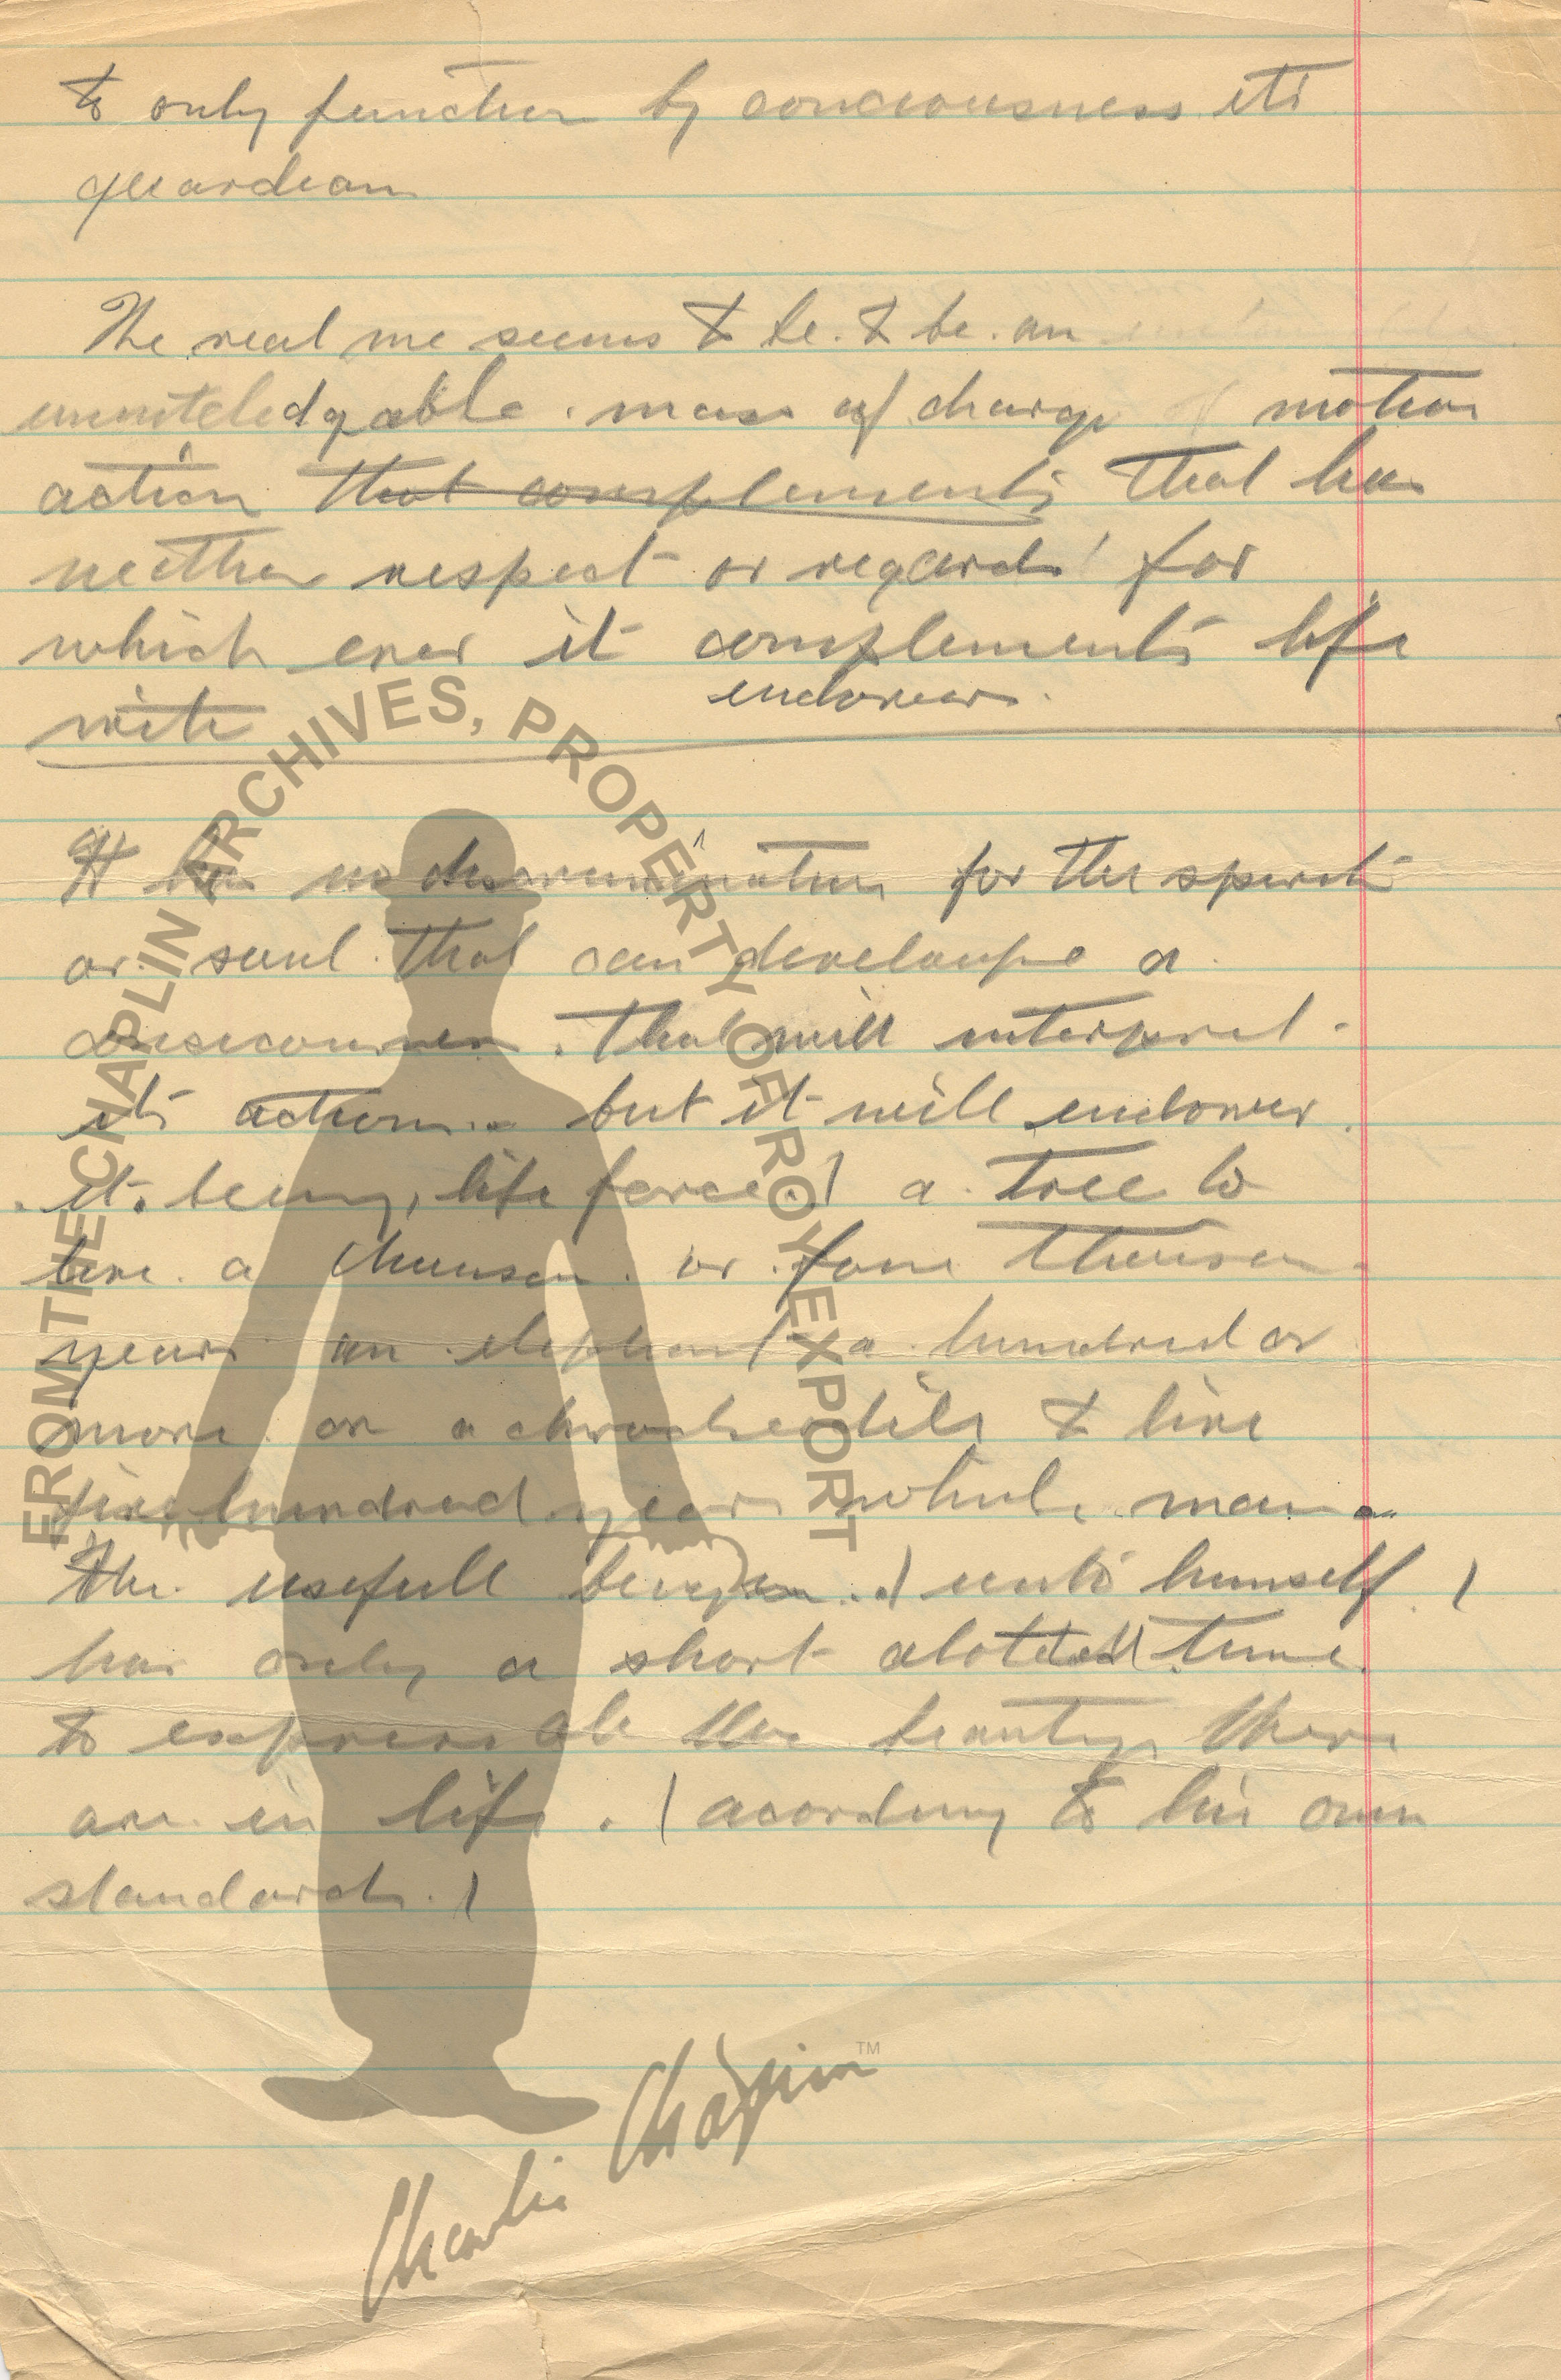 to only function by conciousness its
guardean
The real me seems to be. to be. an
mass of charge of motion
action that complements that has
neither respect or regards for
which ever it complements life
endowers.
with
It has no descrimination for the spirit
or. soul. that can develoupe a.
that will interpret.
its actions. but it will endower.
it. being, life force.) a. tree to
live. a thousen. or. four thousen.
years. an. elephant a. hundred or
more. or a to live
five hundred years while. man
the. usefull being unto himself. )
has only a short alotted time.
to express all the beautys there
are. in life. (acording to his own
standards.)
FROM THE CHAPLIN ARCHIVES, PROPERTY OF ROY EXPORT
Charlie Chaplin™